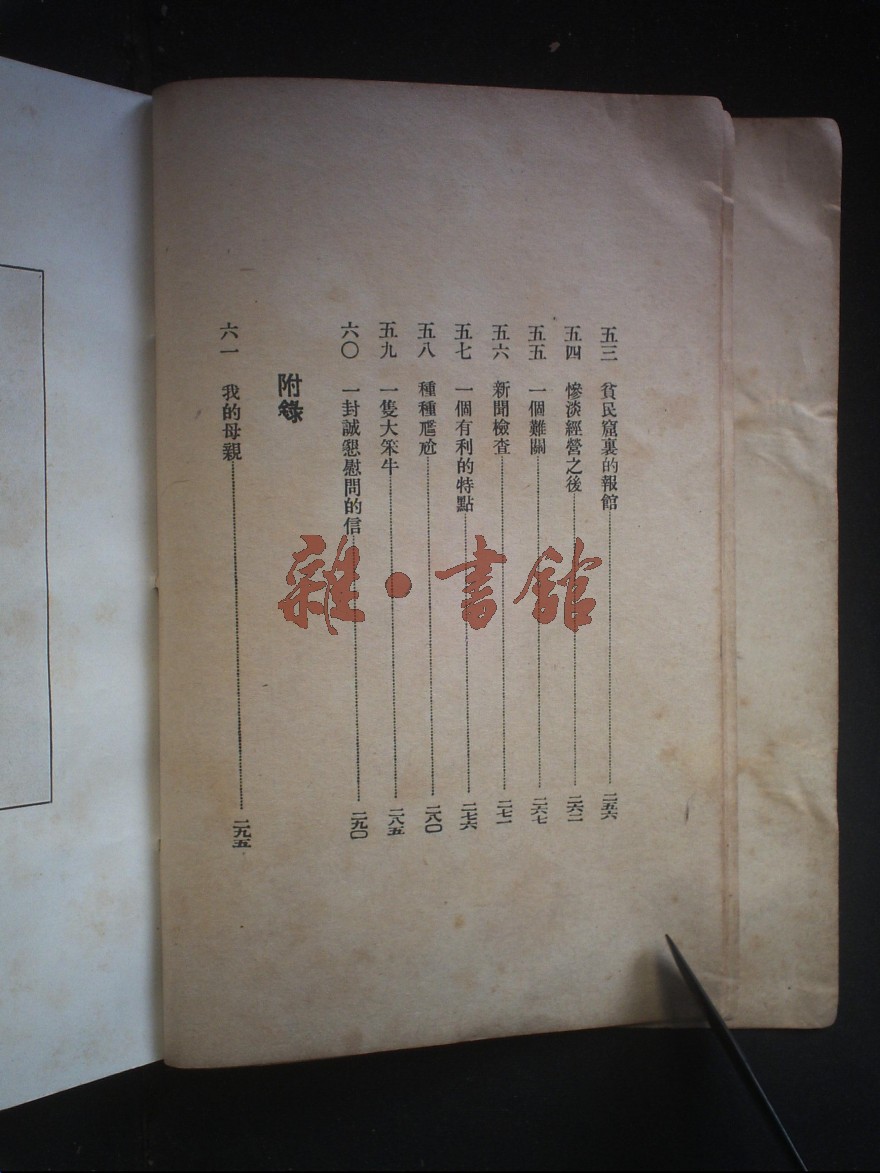 五三 貧民窟裏的報館 二五六
五四 慘淡經營之後 二六二
五五 一個難關 二六七
五六 新聞檢查 二七一
五七 一個有利的特點 二七六
五八 種種尶尬 二八〇
五九 一隻大笨牛 二八五
六〇 一封誠懇慰問的信 二九〇
附錄
六一 我的母親 二九五
雜·書館